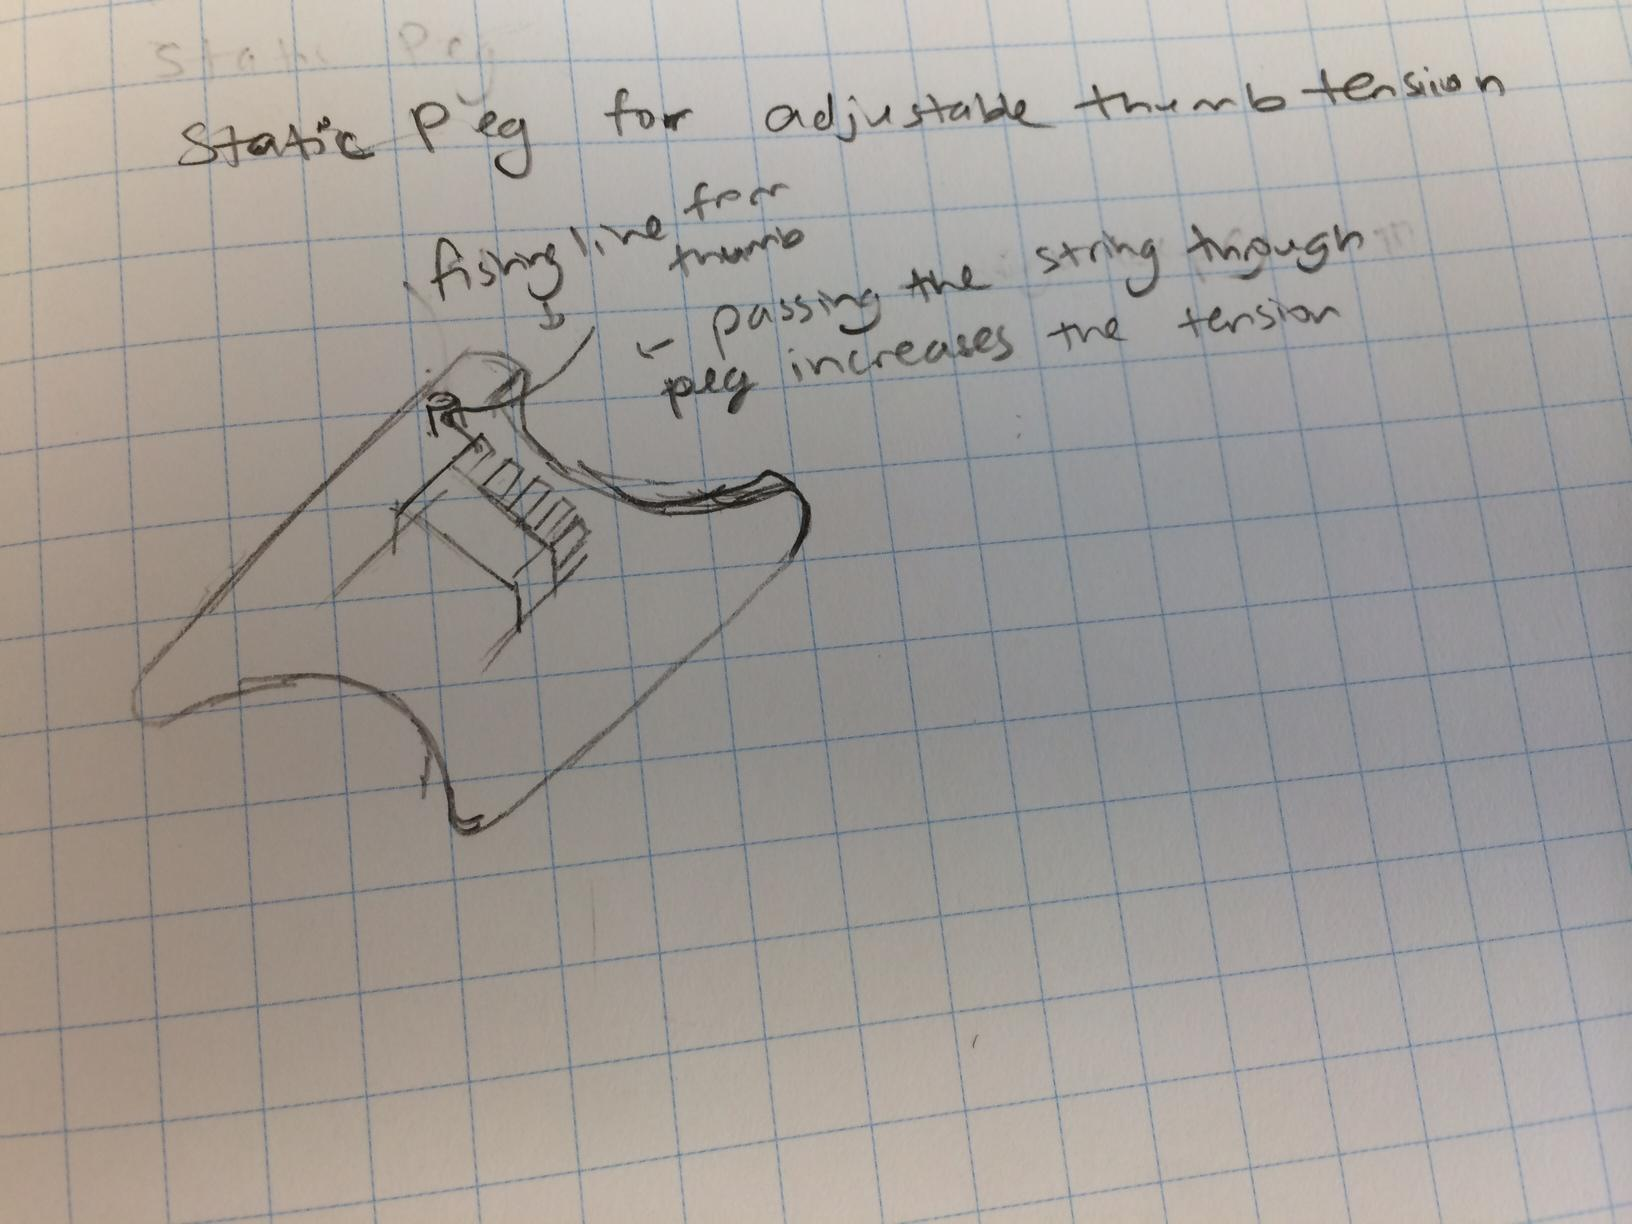 Static Peg
Static Peg for adjustable thumb tension
fising line from
thumb
← passing the string through
peg increases the tension